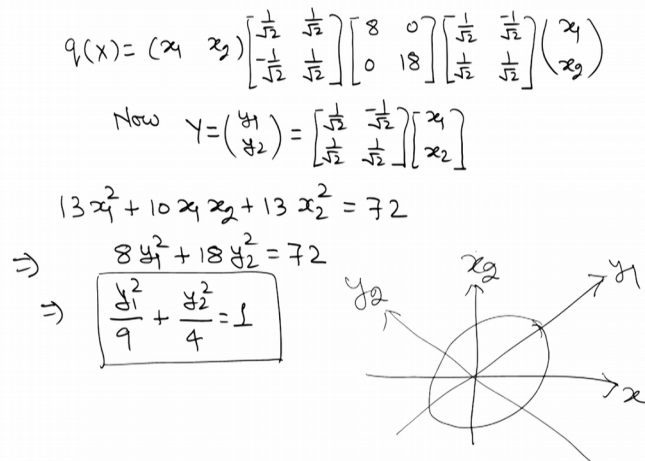 q(x) = (x₁ x₂) [1/√2 1/√2; -1/√2 1/√2] [8 0; 0 18] [1/√2 -1/√2; 1/√2 1/√2] (x₁; x₂)
Now Y = (y₁; y₂) = [1/√2 -1/√2; 1/√2 1/√2] [x₁; x₂]
13x₁² + 10x₁x₂ + 13x₂² = 72
⇒ 8y₁² + 18y₂² = 72
⇒ y₁²/9 + y₂²/4 = 1
y₂
x₂
y₁
x